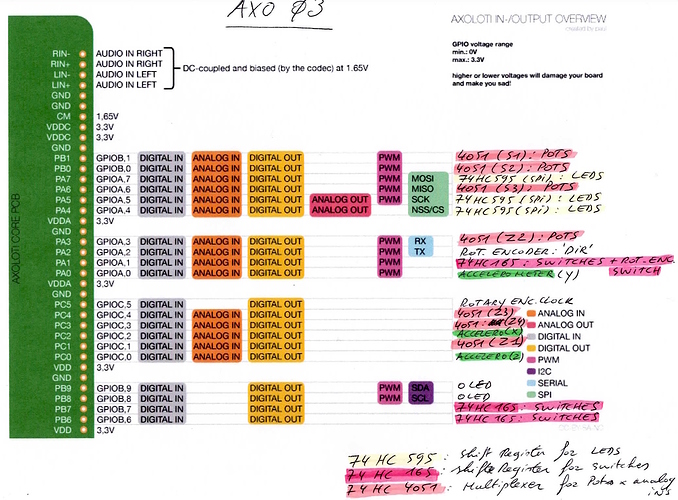 AXO Ø3
AXOLOTI IN-/OUTPUT OVERVIEW
GPIO voltage range
min.: 0V
max.: 3.3V
higher or lower voltages will damage your board
and make you sad!
AXOLOTI CORE PCB
RIN- AUDIO IN RIGHT
RIN+ AUDIO IN RIGHT
LIN- AUDIO IN LEFT
LIN+ AUDIO IN LEFT
DC-coupled and biased (by the codec) at 1.65V
GND
GND
CM 1,65V
VDDC 3,3V
VDDC 3,3V
GND
PB1 GPIOB,1 DIGITAL IN ANALOG IN DIGITAL OUT PWM 4051 (S1): POTS
PB0 GPIOB,0 DIGITAL IN ANALOG IN DIGITAL OUT PWM 4051 (S2): POTS
PA7 GPIOA,7 DIGITAL IN ANALOG IN DIGITAL OUT PWM MOSI 74HC595 (SPI): LEDS
PA6 GPIOA,6 DIGITAL IN ANALOG IN DIGITAL OUT PWM MISO 4051 (S3): POTS
PA5 GPIOA,5 DIGITAL IN ANALOG IN DIGITAL OUT ANALOG OUT PWM SCK 74HC595 (SPI): LEDS
PA4 GPIOA,4 DIGITAL IN ANALOG IN DIGITAL OUT ANALOG OUT NSS/CS 74HC595 (SPI): LEDS
VDDA 3,3V
GND
PA3 GPIOA,3 DIGITAL IN ANALOG IN DIGITAL OUT PWM RX 4051 (Z2): POTS
PA2 GPIOA,2 DIGITAL IN ANALOG IN DIGITAL OUT PWM TX ROT. ENCODER: 'DIR'
PA1 GPIOA,1 DIGITAL IN ANALOG IN DIGITAL OUT PWM 74HC165: SWITCHES + ROT.ENC.
PA0 GPIOA,0 DIGITAL IN ANALOG IN DIGITAL OUT PWM ACCELEROMETER (Y) SWITCH
VDDA 3,3V
GND
PC5 GPIOC,5 DIGITAL IN DIGITAL OUT ROTARY ENC. CLOCK
PC4 GPIOC,4 DIGITAL IN ANALOG IN DIGITAL OUT 4051 (Z3) ANALOG IN
PC3 GPIOC,3 DIGITAL IN ANALOG IN DIGITAL OUT 4051: (Z4) ANALOG OUT
PC2 GPIOC,2 DIGITAL IN ANALOG IN DIGITAL OUT ACCELERO(X) DIGITAL IN
PC1 GPIOC,1 DIGITAL IN ANALOG IN DIGITAL OUT 4051 (Z1) DIGITAL OUT
PC0 GPIOC,0 DIGITAL IN ANALOG IN DIGITAL OUT ACCELERO(Z) PWM
VDD 3,3V I2C
GND SERIAL
PB9 GPIOB,9 DIGITAL IN DIGITAL OUT PWM SDA OLED SPI
PB8 GPIOB,8 DIGITAL IN DIGITAL OUT PWM SCL OLED
PB7 GPIOB,7 DIGITAL IN DIGITAL OUT 74HC165: SWITCHES
PB6 GPIOB,6 DIGITAL IN DIGITAL OUT 74HC165: SWITCHES
VDD 3,3V
74 HC 595 : Shift Register for LEDS
74 HC 165 : shifte Register for switches
74 HC 4051 : Multiplexer for Potis x analog
ins